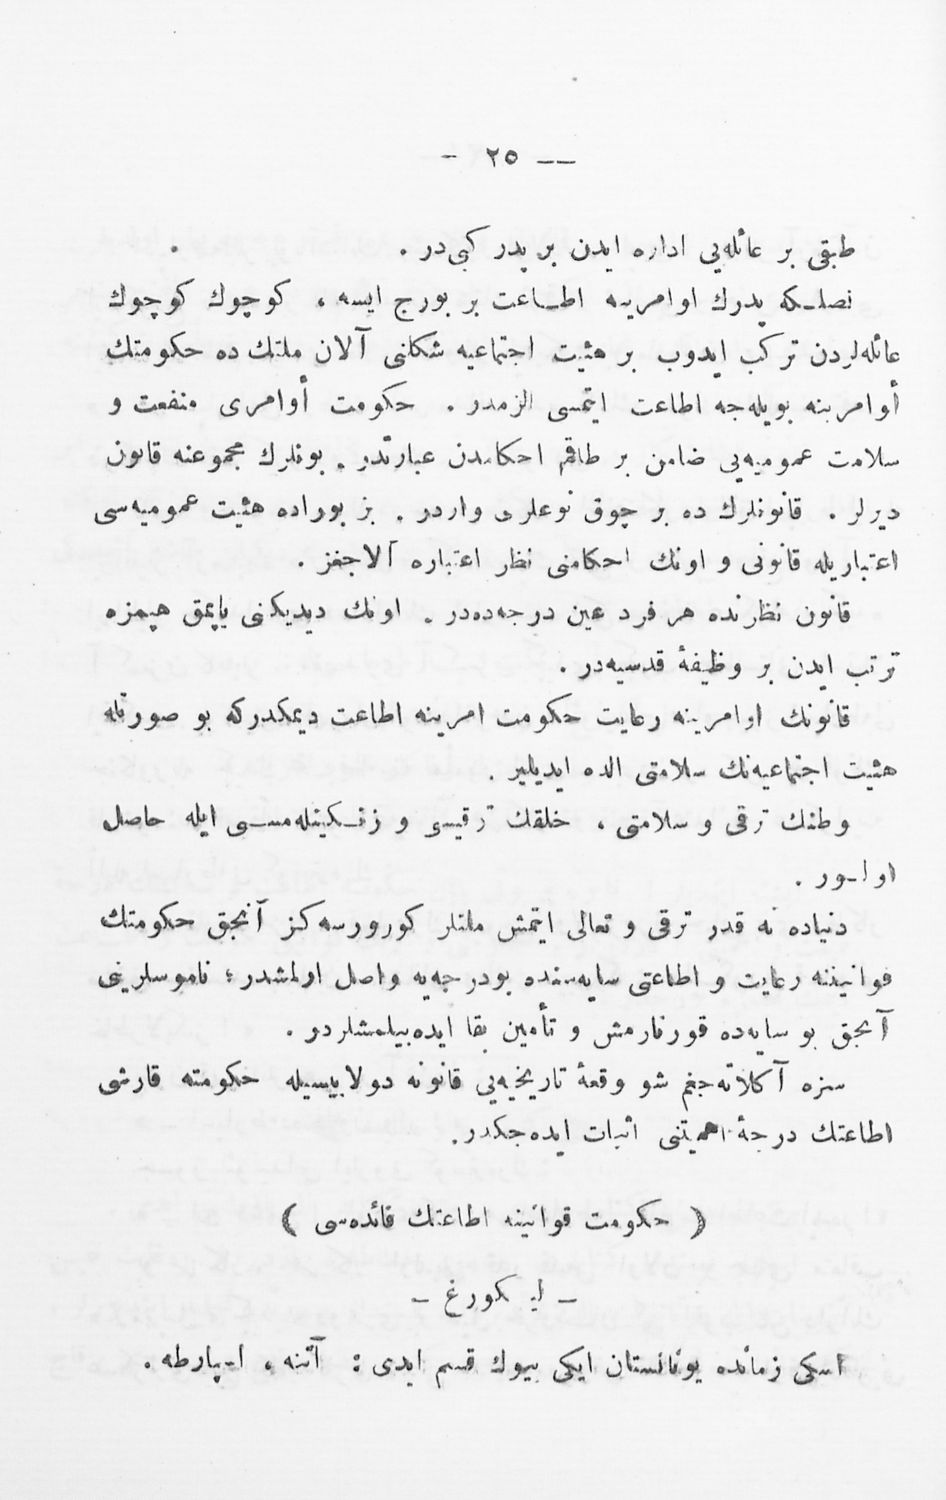 — ٢٥ -
طبقی بر عائله‌یی اداره ایدن بر پدر کبی‌در .
نصلـکه پدرك اوامرینه اطـاعت بر بورج ایسه ، کوچوك کوچوك
عائله‌لردن ترکب ایدوب بر هئیت اجتماعیه شکلنی آلان ملتك ده حکومتك
أوامرینه بویله‌جه اطاعت ایتمسی الزمدر . حکومت أوامری منفعت و
سلامت عمومیه‌یی ضامن بر طاقم احکامدن عبارتدر . بونلرك مجموعنه قانون
دیرلر . قانونلرك ده بر چوق نوعلری واردر . بز بوراده هئیت عمومیه‌سی
اعتباریله قانونی و اونك احکامنی نظر اعتباره آلاجغز .
قانون نظرنده هر فرد عین درجه‌ده‌در . اونك دیدیکنی یاپمق هپمزه
ترتب ایدن بر وظیفهٔ قدسیه‌در .
قانونك اوامرینه رعایت حکومت امرینه اطاعت دیمکدرکه بو صورتله
هئیت اجتماعیه‌نك سلامتی الده ایدیلیر .
وطنك ترقی و سلامتی ، خلقك ترقیسی و زنـکینله‌مسـی ایله حاصل
اولـور .
دنیاده نه قدر ترقی و تعالی ایتمش ملتلر کورورسه‌کز آنجق حکومتك
قوانیننه رعایت و اطاعتی سایه‌سنده بودرجه‌یه واصل اولمشدر ؛ ناموسلرینی
آنجق بو سایه‌ده قورتارمش و تأمین بقا ایده‌بیلمشلردر .
سزه آکلاته‌جغم شو وقعهٔ تاریخیه‌یی قانونه دولاییسیله حکومته قارشی
اطاعتك درجهٔ اهمیتنی اثبات ایده‌جکدر.
( حکومت قوانینه اطاعتك فائده‌سی )
– لیـکورغ –
اسکی زمانده یونانستان ایکی بیوك قسم ایدی : آتنه ، اسپارطه .